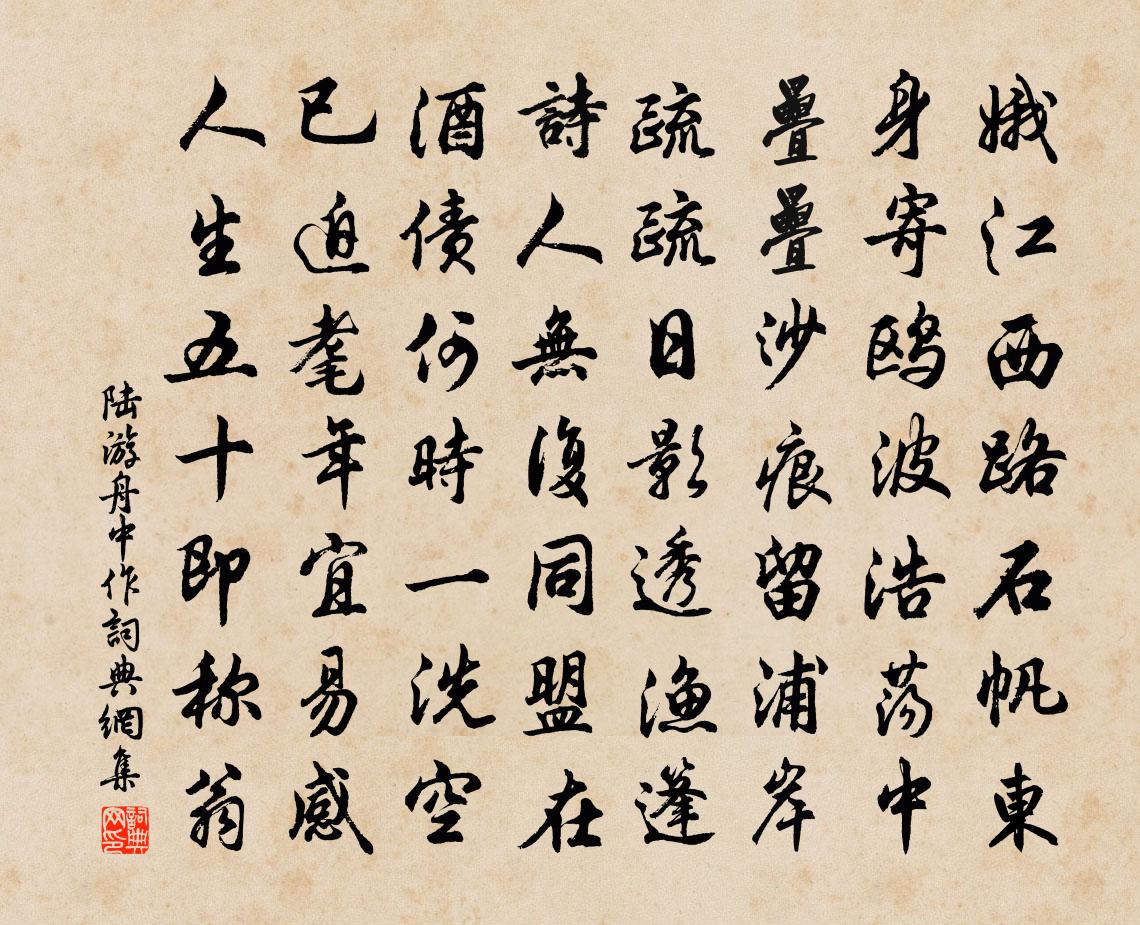 娥江西路石帆東
身寄鸥波浩荡中
疊疊沙痕留浦岸
疏疏日影透漁蓬
詩人無復同盟在
酒债何時一洗空
已迫耄年宜易感
人生五十即称翁
陆游舟中作詞典網集
詞典网印